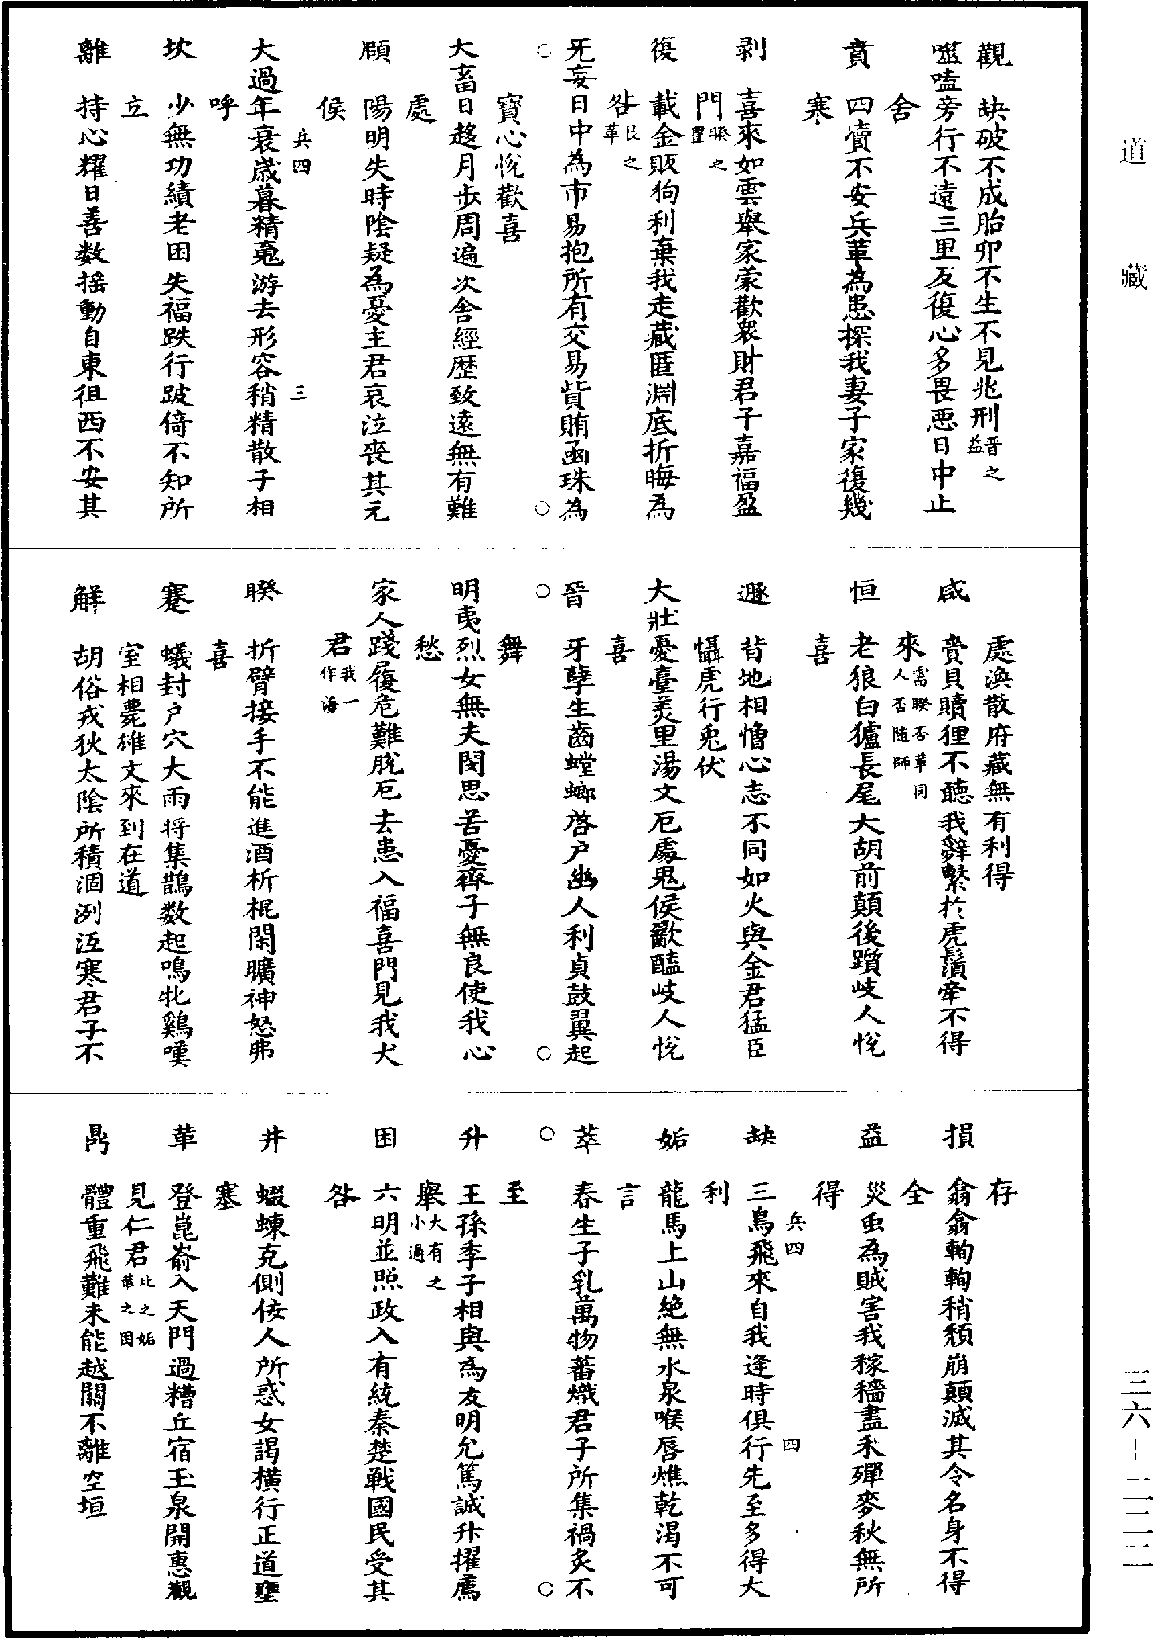 觀　缺破不成胎卵不生不見兆刑晉之益
噬嗑旁行不遠三里反復心多畏惡日中止
舍
賁　四瀆不安兵革為患探我妻子家復幾
寒
剥　喜來如雲舉家蒙歡眾財君子嘉福盈
門睽之豐
復　載金販狗利棄我走藏匿淵底折晦為
咎艮之革
旡妄日中為市易抱所有交易貲賄函珠為
寶心悅歡喜
大畜日趍月步周遍次舍經歷致遠無有難
處
頤　陽明失時陰疑為憂主君哀泣喪其元
侯
兵四　三
大過年衰歲暮精䰟游去形容稍精散子相
呼
坎　少無功績老困失福跌行跛倚不知所
立
離　持心耀日善数搖動自東徂西不安其
處渙散府藏無有利得
咸　賫貝贖狸不聽我辭繫於虎鬚牽不得
來需睽否革同人否随師
恒　老狼白獹長尾大胡前顛後躓岐人悅
喜
遯　背地相憎心志不同如火與金君猛臣
懾虎行兎伏
大壯憂臺羑里湯文厄處鬼侯歠醢岐人悅
喜
晉　牙孽生齒螳螂啓户幽人利貞鼓翼起
舞
明夷烈女無夫閔思苦憂齊子無良使我心
愁
家人踐履危難脫厄去患入福喜門見我犬
君我一作海
睽　折臂接手不能進酒析棍閑曠神怒弗
喜
蹇　蟻封户穴大雨将集鵲数起鳴牝鷄嘆
室相薨雄文來到在道
解　胡俗戎狄太陰所積涸冽冱寒君子不
存
損　翕翕軥軥稍頹崩顛滅其令名身不得
全
益　災虫為賊害我稼穡盡禾殫麥秋無所
得
兵四　四
缺　三鳥飛來自我逢時俱行先至多得大
利
姤　龍馬上山絶無水泉喉唇燋乾渴不可
言
萃　春生子乳萬物蓄熾君子所集禍灾不
至
升　王孫季子相與為友明允篤誠升擢薦
舉大有之小過
困　六明並照政入有統秦楚戰國民受其
咎
井　蝃蝀充側佞人所惑女謁横行正道壅
塞
革　登崑崙入天門過糟丘宿玉泉開惠觀
見仁君比之姤革之困
鼎　體重飛難未能越關不離空垣
道藏
三六－二二二